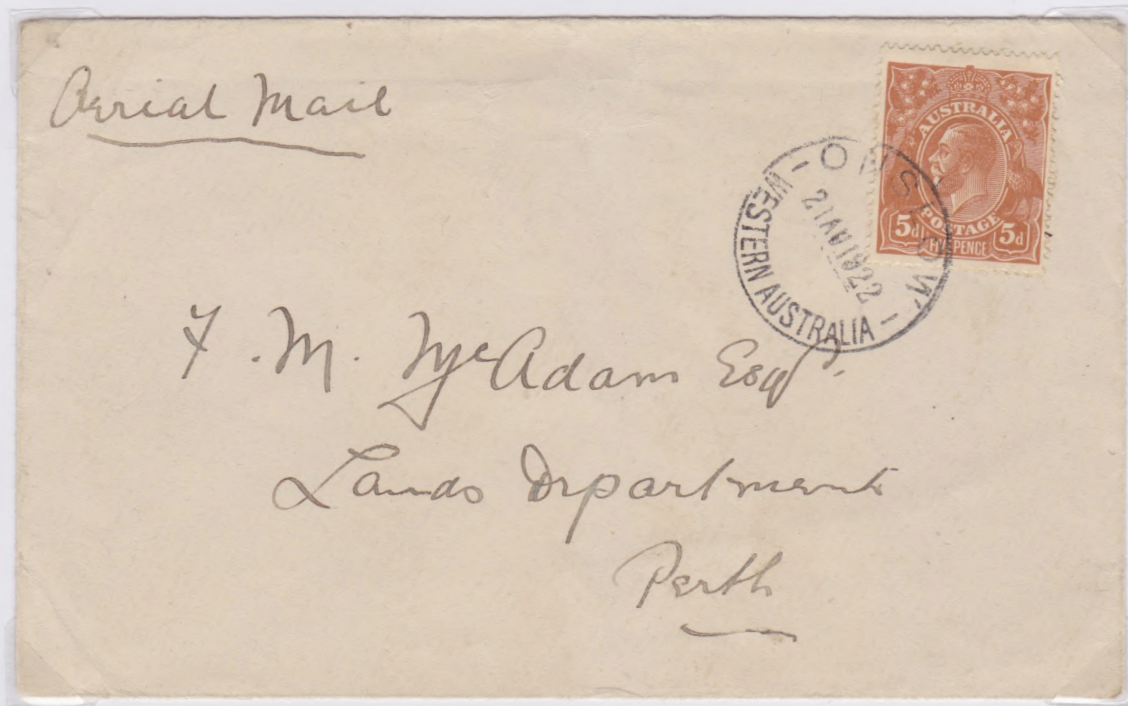 Aerial Mail
AUSTRALIA
POSTAGE
5d FIVE PENCE 5d
ONSLOW
21 AU 1922
WESTERN AUSTRALIA
F. M. McAdam Esqr.
Lands Department
Perth